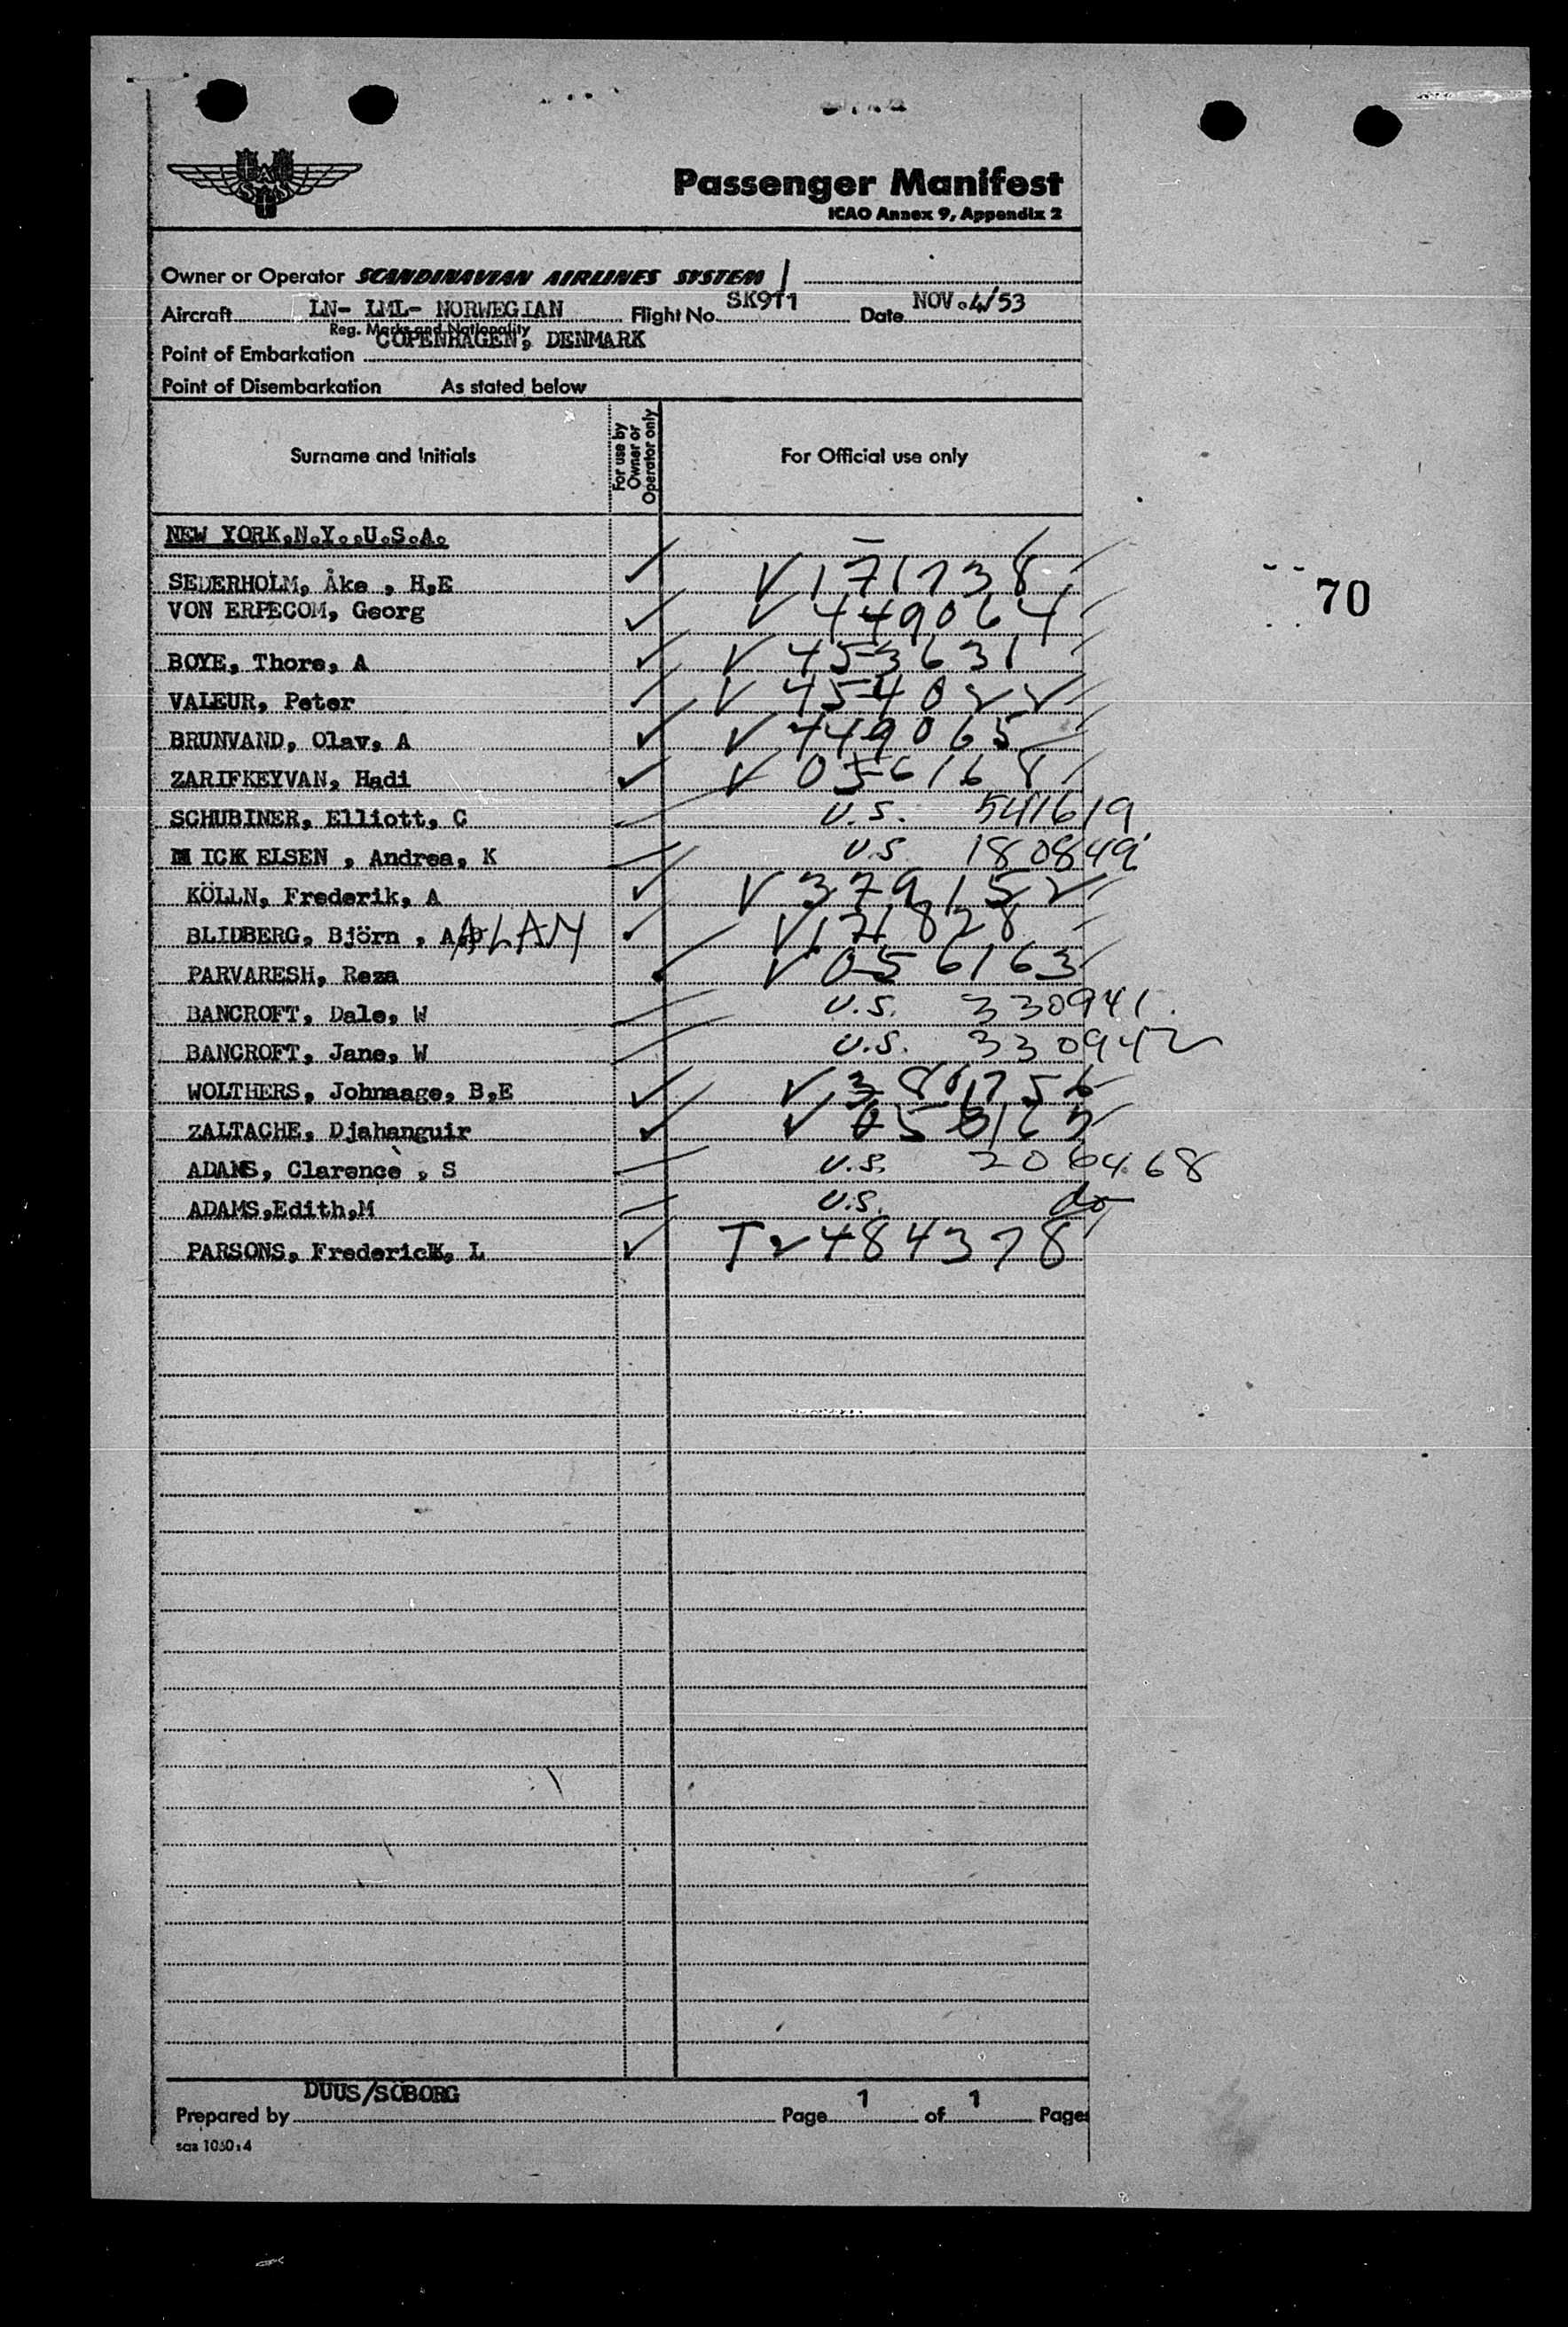 Passenger Manifest
ICAO Annex 9, Appendix 2
Owner or Operator SCANDINAVIAN AIRLINES SYSTEM
Aircraft LN- LML- NORWEGIAN Flight No. SK911 Date NOV.4/53
Reg. Marks and Nationality
Point of Embarkation COPENHAGEN, DENMARK
Point of Disembarkation As stated below
Surname and Initials For use by Owner or Operator only For Official use only
NEW YORK.N.Y..U.S.A.
SEDERHOLM, Åke , H,E V 171738
70
VON ERPECOM, Georg V 449064
BOYE, Thore, A V 453631
VALEUR, Peter V 454022
BRUNVAND, Olav, A V 449065
ZARIFKEYVAN, Hadi V 056168
SCHUBINER, Elliott, C U.S. 541619
MICKELSEN , Andrea, K U.S. 180849
KÖLLN, Frederik, A V 379152
BLIDBERG, Björn , ALAN V 171828
PARVARESH, Reza V 056163
BANCROFT, Dale, W U.S. 330941
BANCROFT, Jane, W U.S. 330942
WOLTHERS, Johnaage, B,E V
ZALTACHE, Djahanguir V
ADAMS, Clarence , S U.S. 206468
ADAMS,Edith,M U.S. do
PARSONS, Frederick, L T2484378
DUUS/SÖBORG
Prepared by Page 1 of 1 Pages
sas 1030:4